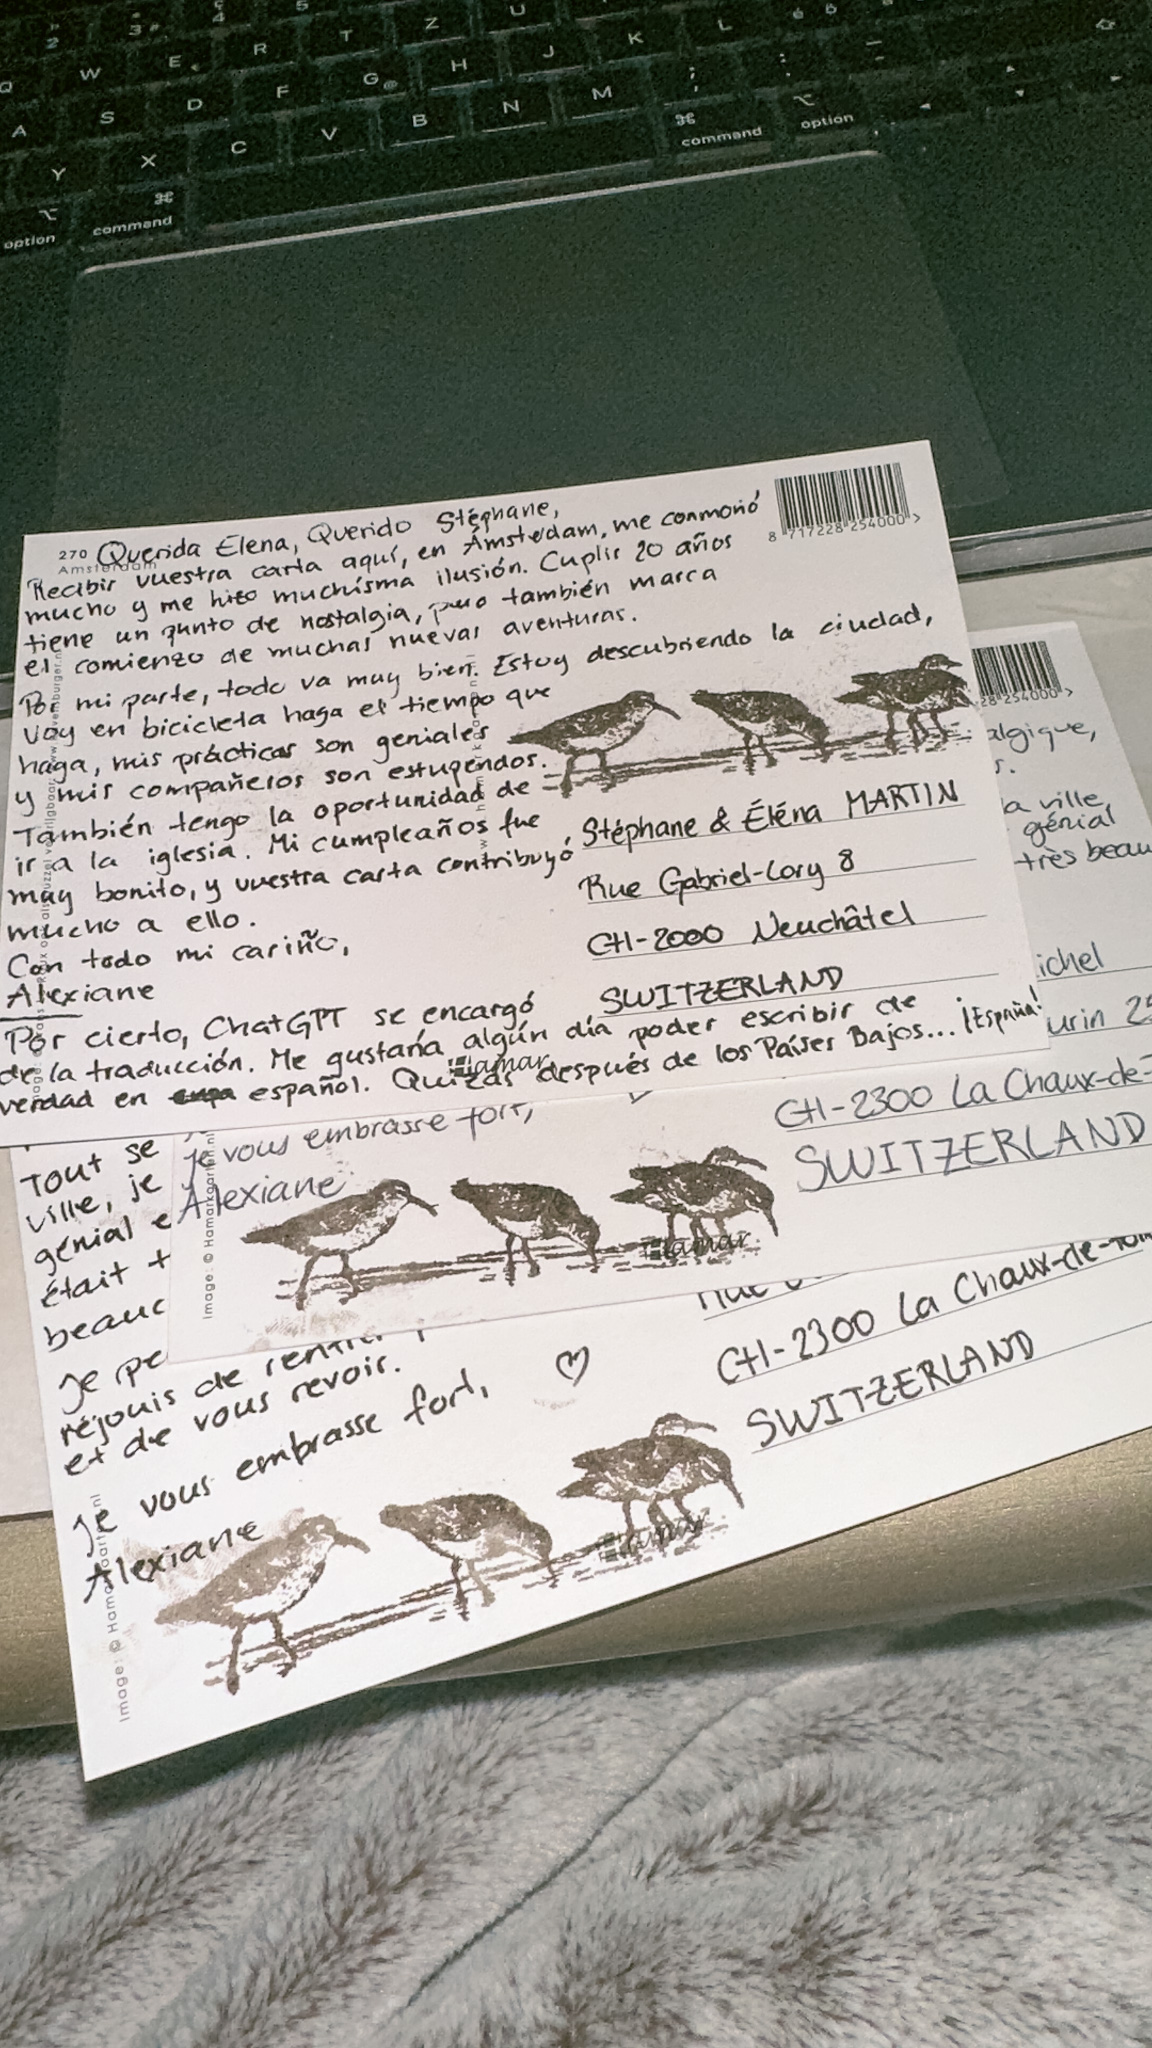 2
3
4
5
U
Q W E R T Z
A S D F G H J K L
Y X C V B N M
option command
command option
270
Amsterdam
8 717228 254000 >
Querida Elena, Querido Stéphane,
Recibir vuestra carta aquí, en Amsterdam, me conmovió
mucho y me hizo muchísma ilusión. Cuplir 20 años
tiene un punto de nostalgia, pero también marca
el comienzo de muchas nuevas aventuras.
Por mi parte, todo va muy bien. Estoy descubriendo la ciudad,
voy en bicicleta haga el tiempo que
haga, mis prácticas son geniales
y mis compañeros son estupendos.
También tengo la oportunidad de
ir a la iglesia. Mi cumpleaños fue
muy bonito, y vuestra carta contribuyó
mucho a ello.
Con todo mi cariño,
Alexiane
Por cierto, ChatGPT se encargó
de la traducción. Me gustaría algún día poder escribir de
verdad en español. Quizás después de los Países Bajos... ¡España!
Stéphane & Éléna MARTIN
Rue Gabriel-Lory 8
CH-2000 Neuchâtel
SWITZERLAND
Hamar
28 254000 >
algique,
s.
a ville,
génial
très beau
ichel
urin 25
CH-2300 La Chaux-de-
SWITZERLAND
je vous embrasse fort,
Alexiane
Image: © Hamarkaarten.nl
Hamar
Tout se
ville, je
génial e
était t
beauc
Je pe
réjouis de rentrer
et de vous revoir.
Je vous embrasse fort,
Alexiane
CH-2300 La Chaux-de-Fon
SWITZERLAND
Image: © Hamarkaarten.nl
Hamar